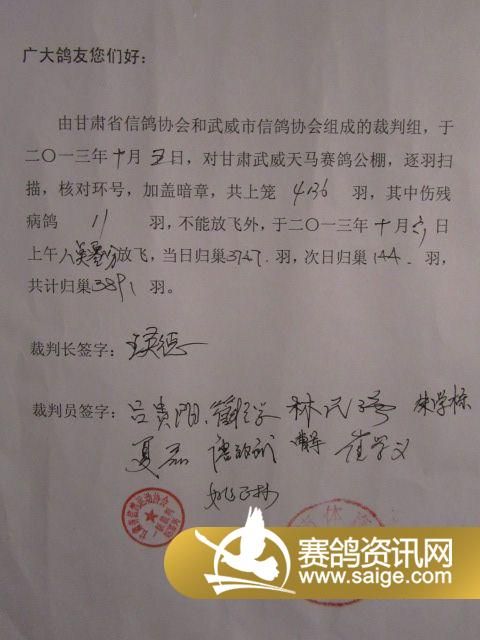 广大鸽友您们好：
由甘肃省信鸽协会和武威市信鸽协会组成的裁判组，于
二〇一三年十月五日，对甘肃武威天马赛鸽公棚，逐羽扫
描，核对环号，加盖暗章，共上笼 4136 羽，其中伤残
病鸽 11 羽，不能放飞外，于二〇一三年十月六日
上午八 放飞，当日归巢3747.羽，次日归巢144.羽，
共计归巢3891羽。
裁判长签字：
裁判员签字：吕贵阳、 林 朱学栋
夏磊 崔学义
赛鸽资讯网
www.saige.com